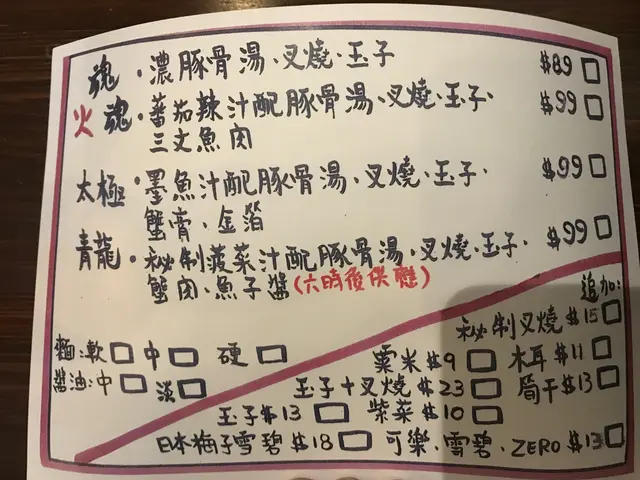 魂・濃豚骨湯、叉燒、玉子 $89
火魂・蕃茄辣汁配豚骨湯、叉燒、玉子、 $99
三文魚肉
太極・墨魚汁配豚骨湯、叉燒、玉子、 $99
蟹膏、金箔
青龍・秘制菠菜汁配豚骨湯、叉燒、玉子、 $99
蟹肉、魚子醬(六時後供應)
追加:
秘制叉燒 $15
麵:軟 中 硬
粟米 $9 木耳 $11
醬油:中 淡
玉子+叉燒 $23 筍干 $13
玉子 $13 紫菜 $10
日本梅子雪碧 $18 可樂、雪碧、ZERO $13